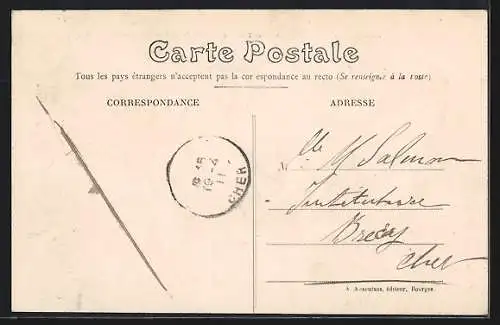 Carte Postale
Tous les pays étrangers n'acceptent pas la cor espondance au recto (Se renseigner à la poste)
CORRESPONDANCE
ADRESSE
15
19 - 2
11
CHER
Mlle M Salmon
Institutrice
Brécy
Cher
A. Auxenfans, éditeur, Bourges.